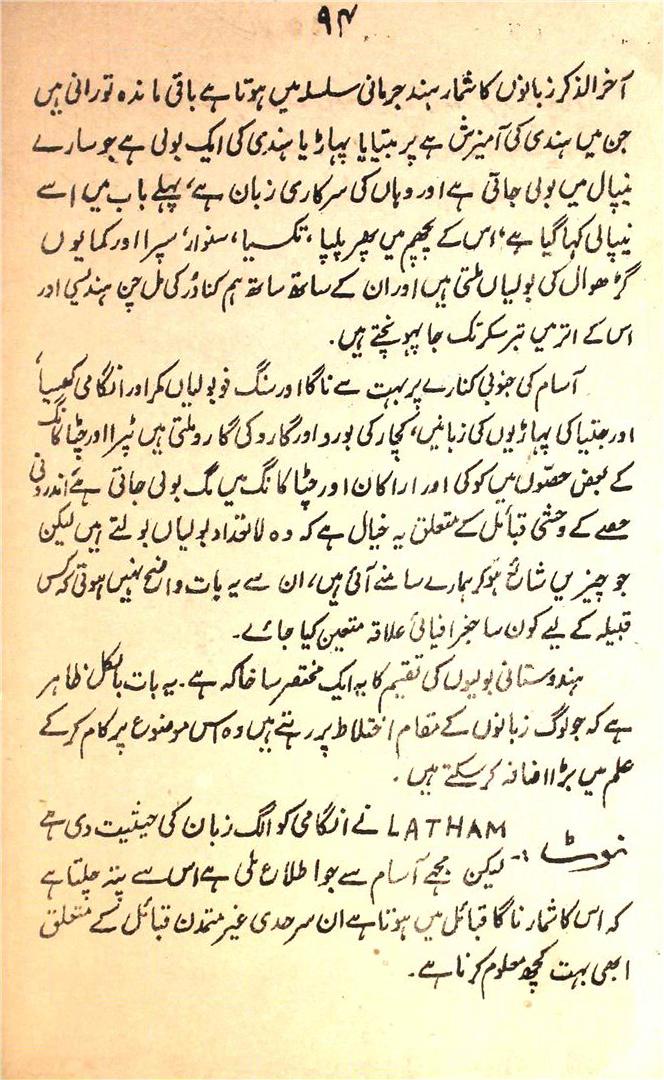 ۹۴
آخر الذکر زبانوں کا شمار ہند جرمانی سلسلہ میں ہوتا ہے باقی ماندہ تورانی ہیں
جن میں ہندی کی آمیزش ہے پربتیا یا پہاڑیا ہندی کی ایک بولی ہے جو سارے
نیپال میں بولی جاتی ہے اور وہاں کی سرکاری زبان ہے، پہلے باب میں اسے
نیپالی کہا گیا ہے، اس کے پچھم میں پھر پلپا، تکسیا، سنوار، سپرا اور کمایوں
گڑھوال کی بولیاں ملتی ہیں اور ان کے ساتھ ساتھ ہم کناور کی مل چن ہندیسی اور
اس کے اتر میں تبرسکر تک جا پہونچتے ہیں.
آسام کی جنوبی کنارے پر بہت سے ناگا اور سنگ فو بولیاں مکر اور انگامی کھسیا،
اور جنتیا کی پہاڑیوں کی زبانیں، کچار کی بورو اور گارو کی گارو ملتی ہیں ٹپرا اور چٹاگانگ
کے بعض حصّوں میں کوکی اور اراکان اور چٹاکانگ میں مگ بولی جاتی ہے، اندرونی
حصے کے وحشی قبائل کے متعلق یہ خیال ہے کہ وہ لاتعداد بولیاں بولتے ہیں لیکن
جو چیزیں شائع ہو کر ہمارے سامنے آئی ہیں، ان سے یہ بات واضح نہیں ہوتی کہ کس
قبیلہ کے لیے کون سا جغرافیائی علاقہ متعین کیا جائے۔
ہندوستانی بولیوں کی تقیم کا یہ ایک مختصر سا خاکہ ہے۔ یہ بات بالکل ظاہر
ہے کہ جو لوگ زبانوں کے مقام اختلاط پر رہتے ہیں وہ اس موضوع پر کام کر کے
علم میں بڑا اضافہ کر سکتے ہیں.
نوٹ:- LATHAM نے انگامی کو الگ زبان کی حیثیت دی ہے
لیکن مجھے آسام سے جو اطلاع ملی ہے اس سے پتہ چلتا ہے
کہ اس کا شمار ناگا قبائل میں ہوتا ہے ان سرحدی غیر متمدن قبائل کے متعلق
ابھی بہت کچھ معلوم کرنا ہے۔